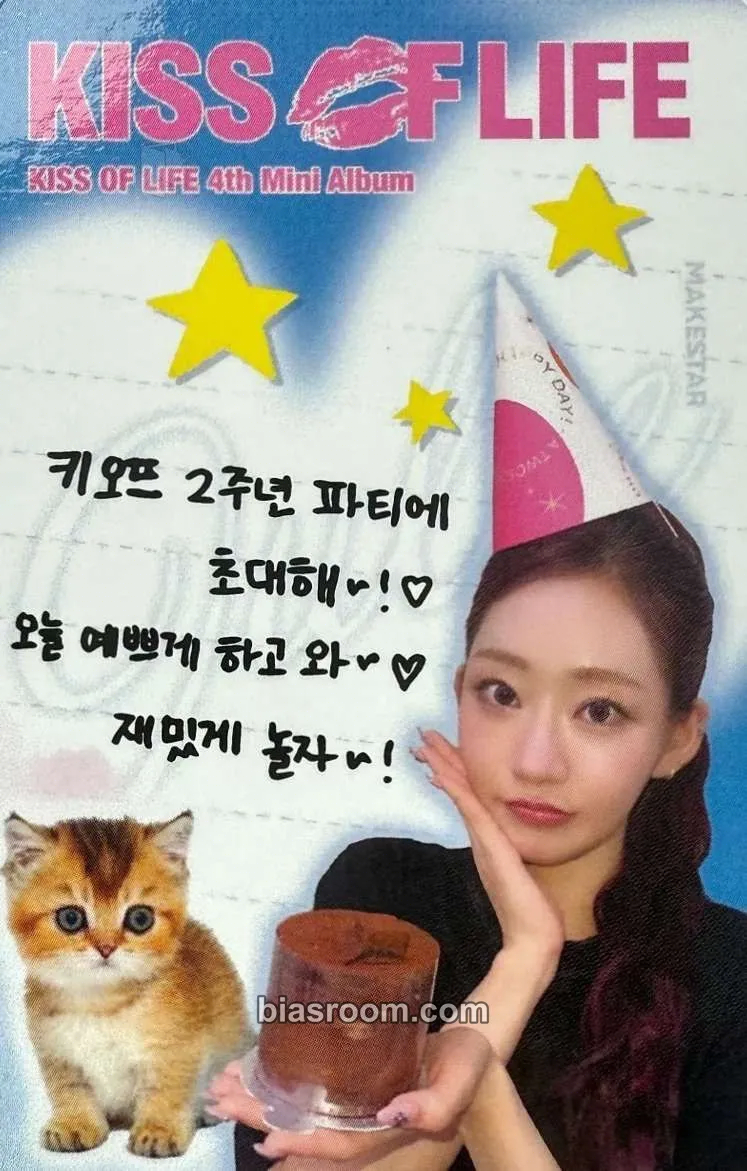 KISS OF LIFE
KISS OF LIFE 4th Mini Album
MAKESTAR
DAY!
키오프 2주년 파티에
초대해~!♡
오늘 예쁘게 하고 와~♡
재밌게 놀자~!
biasroom.com